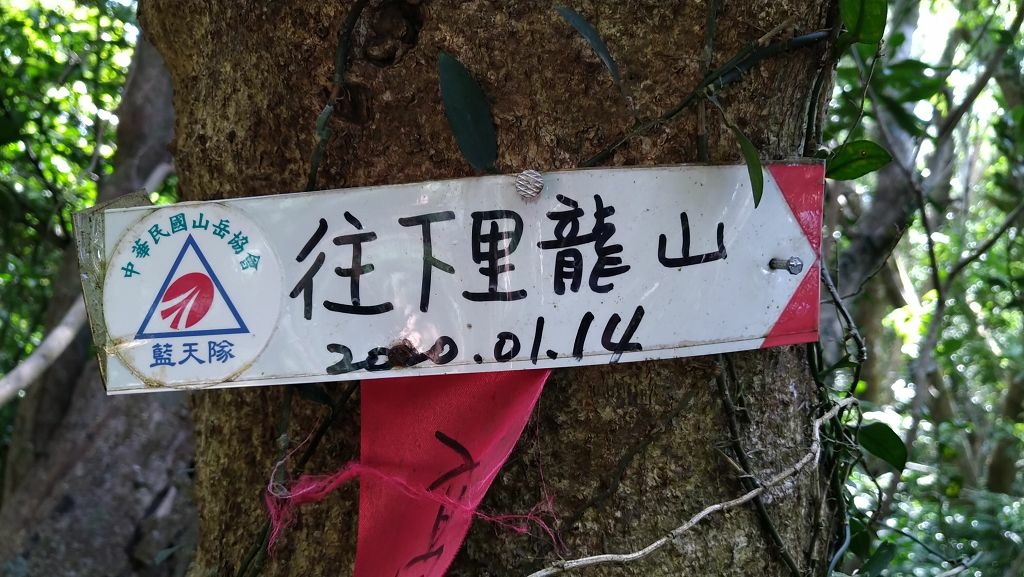 中華民國山岳協會
藍天隊
往下里龍山
2020.01.14